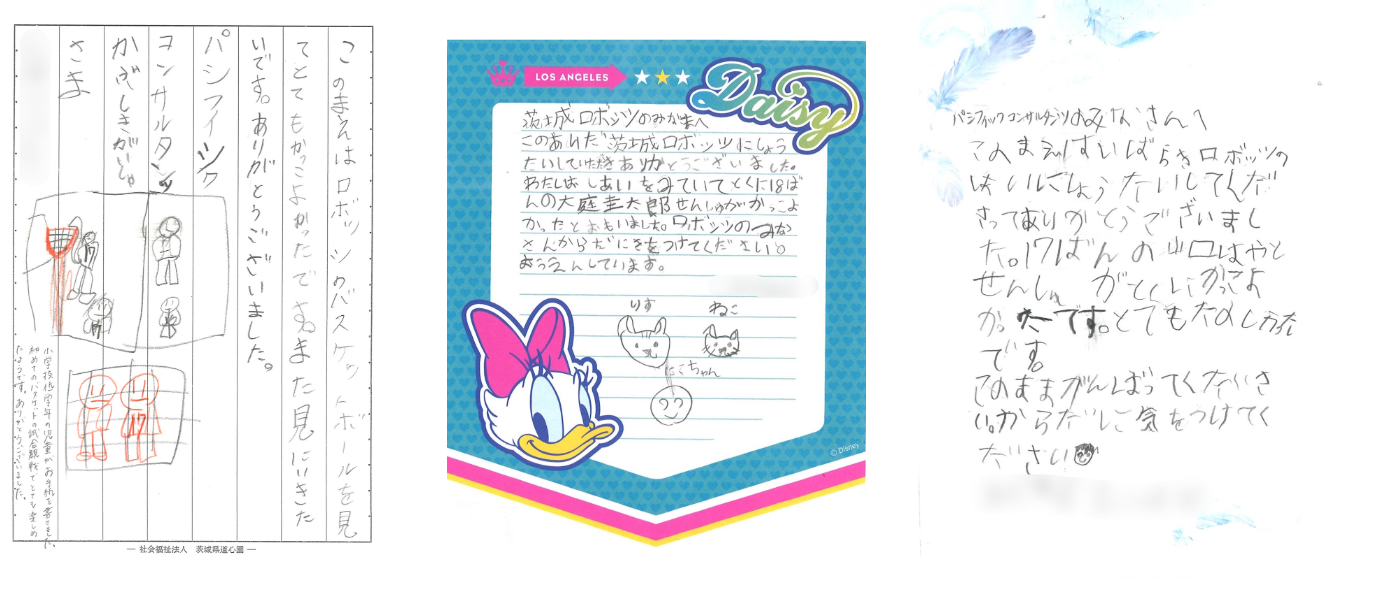 このまえはロボッツのバスケットボールを見
てとてもかっこよかったです。また見にいきた
いです。ありがとうございました。
パシフィック
コンサルタンツ
かぶしきがいしゃ
さま
17
17
小学校低学年の児童がお手紙を書きました。
初めてのバスケットの試合観戦でとても楽しめ
たようです。ありがとうございました。
— 社会福祉法人 茨城県道心園 —
LOS ANGELES
Daisy
茨城ロボッツのみなさまへ
このあいだ茨城ロボッツにしょう
たいしていただきありがとうございました。
わたしはしあいをみていてとくに18ば
んの大庭圭太郎せんしゅがかっこよ
かったとおもいました。ロボッツのみな
さんからだにきをつけてください。
おうえんしています。
りす
ねこ
にこちゃん
© Disney
パシフィックコンサルタンツのみなさんへ
このまえはいばらきロボッツの
しょうたいしてくだ
さってありがとうございまし
た。17ばんの山口はやと
せんしゅがとくにかっこよ
かったです。とてもたのしかった
です。
このままがんばってくださ
い。からだに気をつけてく
ださい